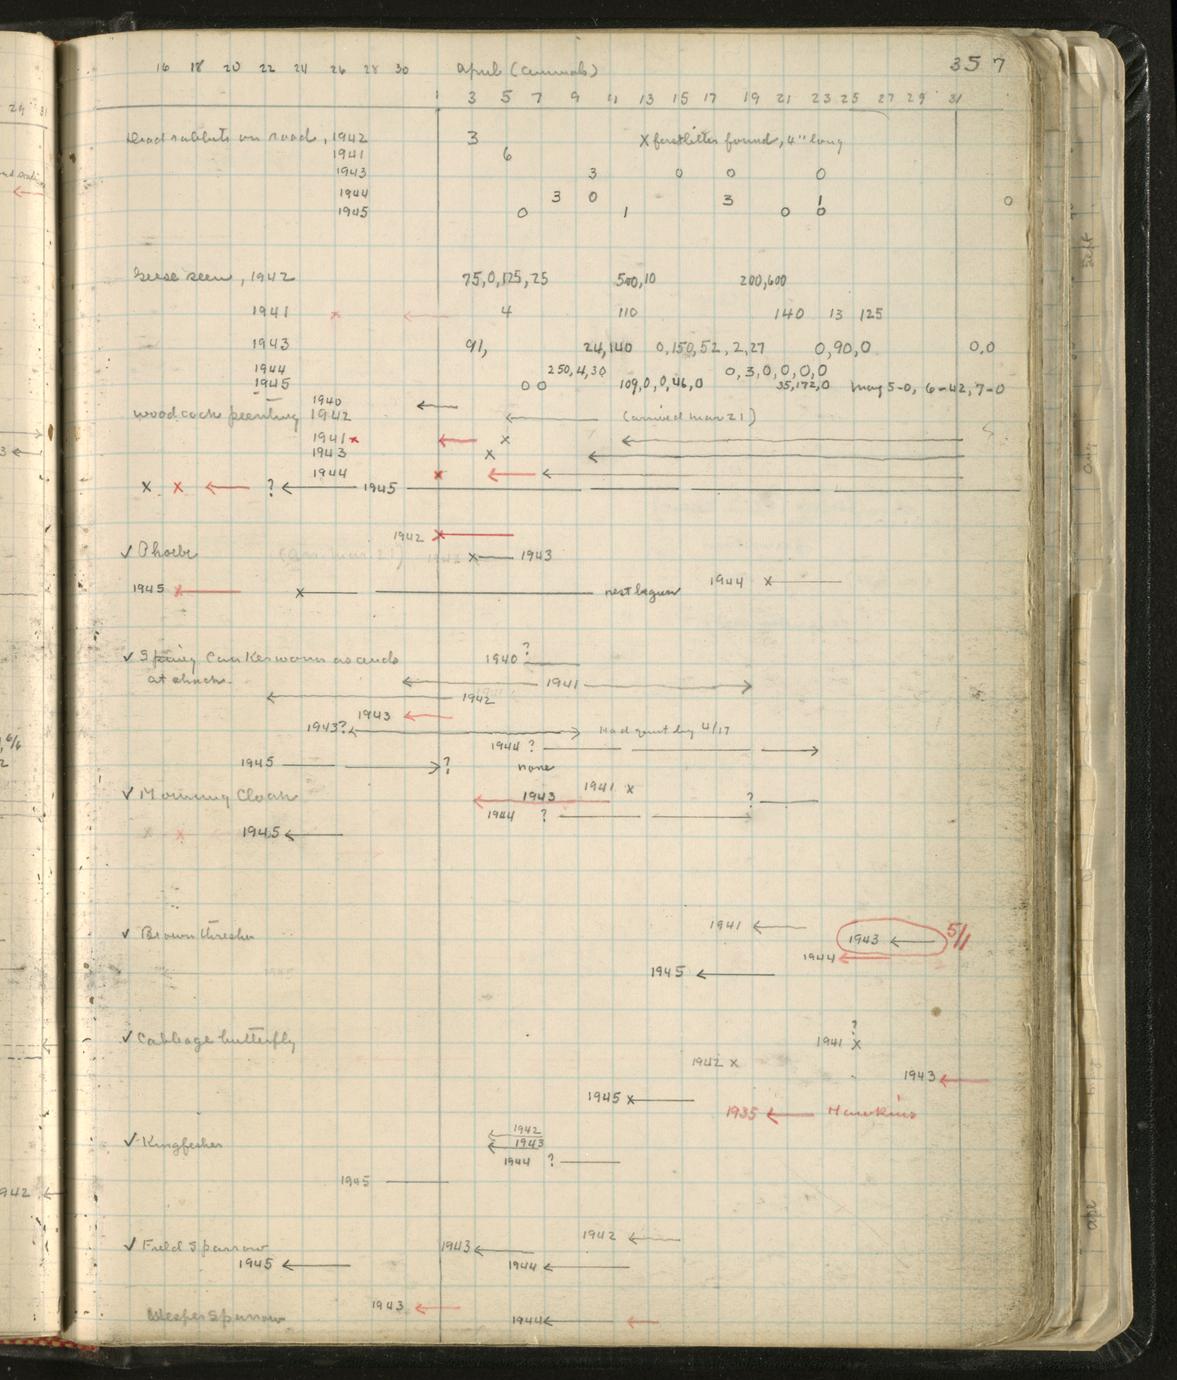 16 18 20 22 24 26 28 30 April (animals) 357
1 3 5 7 9 11 13 15 17 19 21 23 25 27 29 31
Dead rabbits on road, 1942 3 X first litter found, 4" long
1941 6
1943 3 0 0 0
1944 3 0 3 1 0
1945 0 1 0 0
Geese seen, 1942 75,0,125,25 500,10 200,600
1941 x ← 4 110 140 13 125
1943 91, 24,140 0,150,52,2,27 0,90,0 0,0
1944 250,4,30 0,3,0,0,0
1945 0 0 109,0,0,46,0 35,172,0 May 5-0, 6-42, 7-0
1940 ←
Woodcock peenting 1942 ← (arrived Mar 21)
1941 x ← x ←
1943 x ←
1944 x ← ←
x x ← ? ← 1945
1942 x
✓ Phoebe (arr. Mar 21) 1942 x 1943
1944 x
1945 x x nest begun
✓ Spring Cankerworm ascends 1940 ?
at shack. ← 1941 →
← 1942
1943 ←
1943? ← → Had quit by 4/17
1944 ? →
1945 → ? none
✓ Mourning Cloak 1941 x
← 1943 ?
1944 ?
x x 1945 ←
✓ Brown thresher 1941 ←
1943 ← 5/1
1944 ←
1945 ←
✓ Cabbage butterfly ?
1941 x
1942 x
1943 ←
1945 x
1935 ← Hawkins
✓ Kingfisher ← 1942
← 1943
1944 ?
1945
✓ Field Sparrow 1942 ←
1943 ←
1945 ← 1944 ←
Vesper Sparrow 1943 ←
1944 ← ←